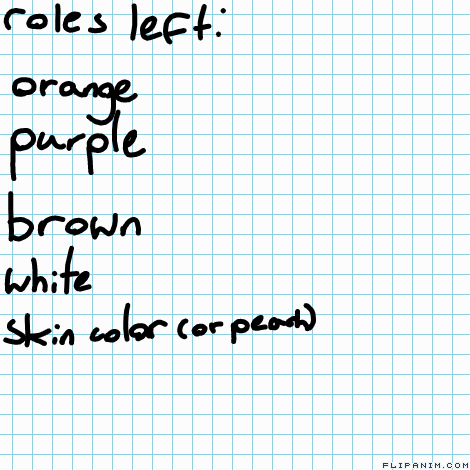 roles left:
orange
purple
brown
white
skin color (or peach)
FLIPANIM.COM